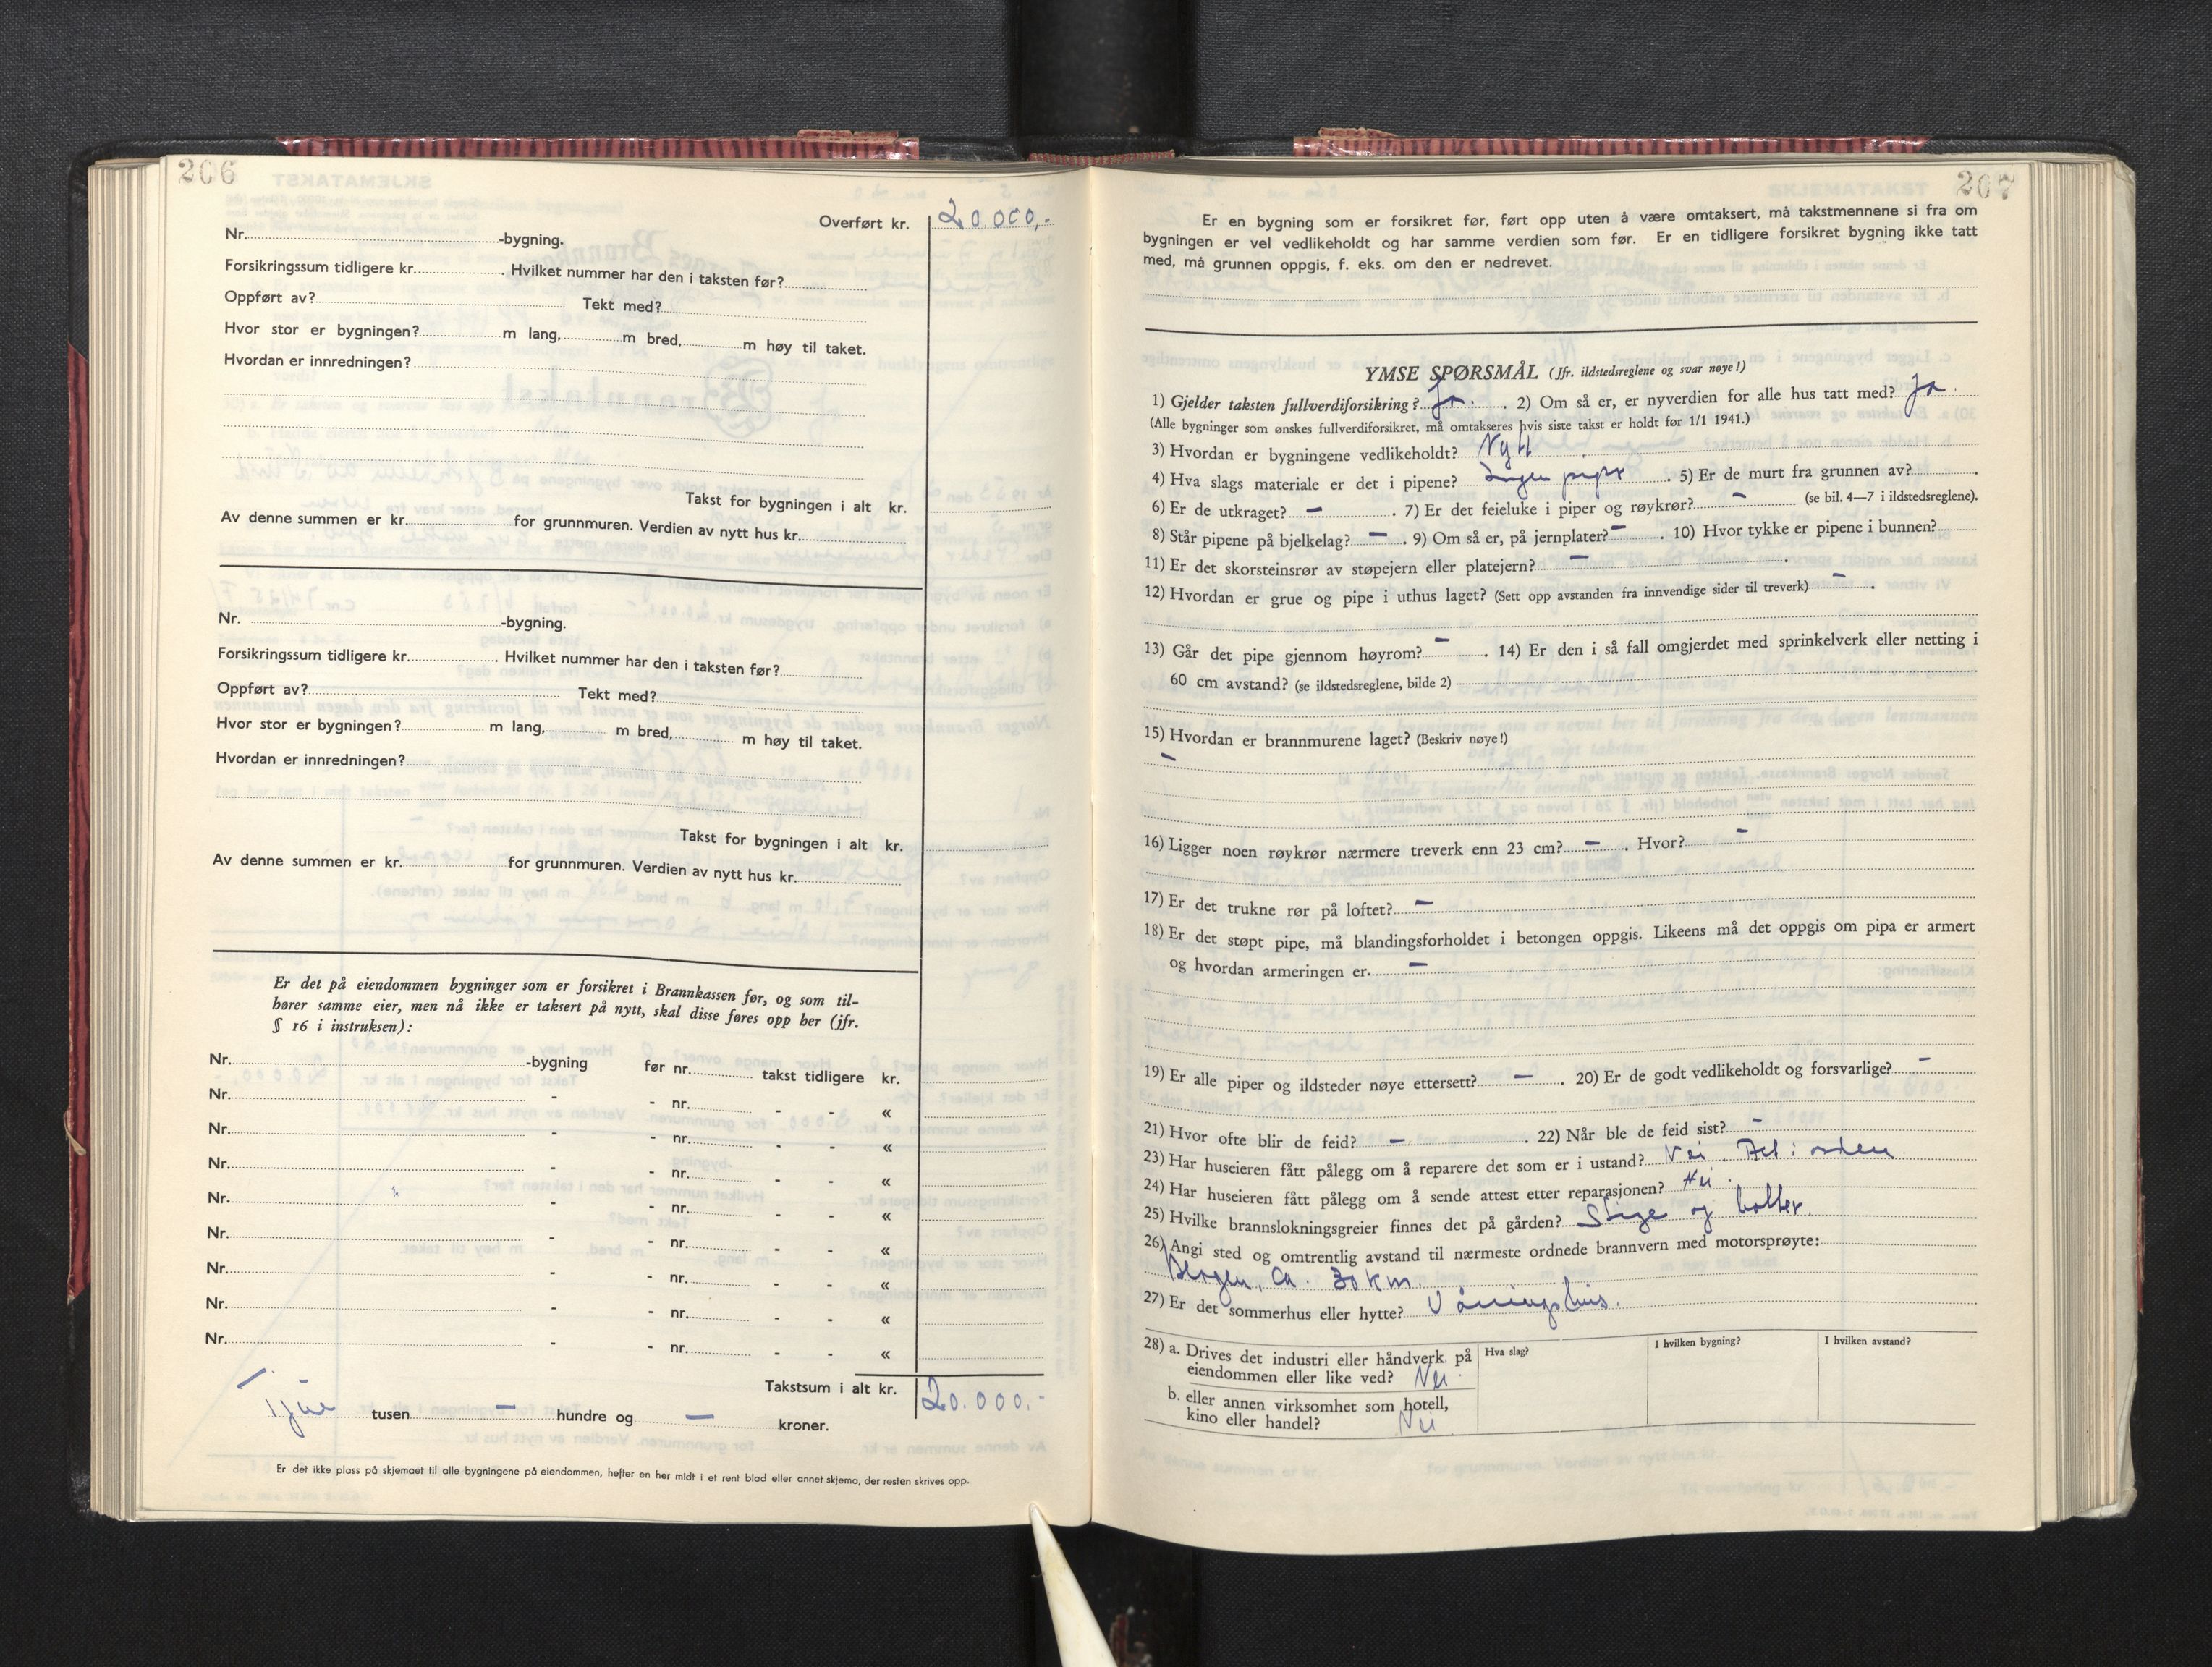 206
Overført kr. 20.000,-
Nr. -bygning.
Forsikringssum tidligere kr. . Hvilket nummer har den i taksten før?
Oppført av? Tekt med?
Hvor stor er bygningen? m lang, m bred, m høy til taket.
Hvordan er innredningen?
Takst for bygningen i alt kr.
Av denne summen er kr. for grunnmuren. Verdien av nytt hus kr.
Nr. -bygning.
Forsikringssum tidligere kr. . Hvilket nummer har den i taksten før?
Oppført av? Tekt med?
Hvor stor er bygningen? m lang, m bred, m høy til taket.
Hvordan er innredningen?
Takst for bygningen i alt kr.
Av denne summen er kr. for grunnmuren. Verdien av nytt hus kr.
Er det på eiendommen bygninger som er forsikret i Brannkassen før, og som til-
hører samme eier, men nå ikke er taksert på nytt, skal disse føres opp her (jfr.
§ 16 i instruksen):
Nr. -bygning før nr. takst tidligere kr.
Nr. - - nr. - - «
Nr. - - nr. - - «
Nr. - - nr. - - «
Nr. - - nr. - - «
Nr. - - nr. - - «
Nr. - - nr. - - «
Nr. - - nr. - - «
Nr. - - nr. - - «
Takstsum i alt kr. 20.000.-
Tjue tusen — hundre og — kroner.
Er det ikke plass på skjemaet til alle bygningene på eiendommen, hefter en her midt i et rent blad eller annet skjema, der resten skrives opp.
207
Er en bygning som er forsikret før, ført opp uten å være omtaksert, må takstmennene si fra om
bygningen er vel vedlikeholdt og har samme verdien som før. Er en tidligere forsikret bygning ikke tatt
med, må grunnen oppgis, f. eks. om den er nedrevet.
YMSE SPØRSMÅL (Jfr. ildstedsreglene og svar nøye!)
1) Gjelder taksten fullverdiforsikring? Ja. . 2) Om så er, er nyverdien for alle hus tatt med? Ja.
(Alle bygninger som ønskes fullverdiforsikret, må omtakseres hvis siste takst er holdt før 1/1 1941.)
3) Hvordan er bygningene vedlikeholdt? Nytt .
4) Hva slags materiale er det i pipene? Ingen pipe . 5) Er de murt fra grunnen av? .
6) Er de utkraget? — . 7) Er det feieluke i piper og røykrør? — (se bil. 4—7 i ildstedsreglene).
8) Står pipene på bjelkelag? — . 9) Om så er, på jernplater? — . 10) Hvor tykke er pipene i bunnen?
11) Er det skorsteinsrør av støpejern eller platejern? — .
12) Hvordan er grue og pipe i uthus laget? (Sett opp avstanden fra innvendige sider til treverk) — .
13) Går det pipe gjennom høyrom? — . 14) Er den i så fall omgjerdet med sprinkelverk eller netting i
60 cm avstand? (se ildstedsreglene, bilde 2)
15) Hvordan er brannmurene laget? (Beskriv nøye!)
—
16) Ligger noen røykrør nærmere treverk enn 23 cm? — . Hvor? —
17) Er det trukne rør på loftet? —
18) Er det støpt pipe, må blandingsforholdet i betongen oppgis. Likeens må det oppgis om pipa er armert
og hvordan armeringen er. —
19) Er alle piper og ildsteder nøye ettersett? — . 20) Er de godt vedlikeholdt og forsvarlige? —
21) Hvor ofte blir de feid? — . 22) Når ble de feid sist? —
23) Har huseieren fått pålegg om å reparere det som er i ustand? Nei. Alt i orden
24) Har huseieren fått pålegg om å sende attest etter reparasjonen? Nei.
25) Hvilke brannslokningsgreier finnes det på gården? Stige og bøtter.
26) Angi sted og omtrentlig avstand til nærmeste ordnede brannvern med motorsprøyte:
Bergen, ca. 30 km.
27) Er det sommerhus eller hytte? Våningshus.
28) a. Drives det industri eller håndverk på Hva slag? I hvilken bygning? I hvilken avstand?
eiendommen eller like ved? Nei.
b. eller annen virksomhet som hotell,
kino eller handel? Nei